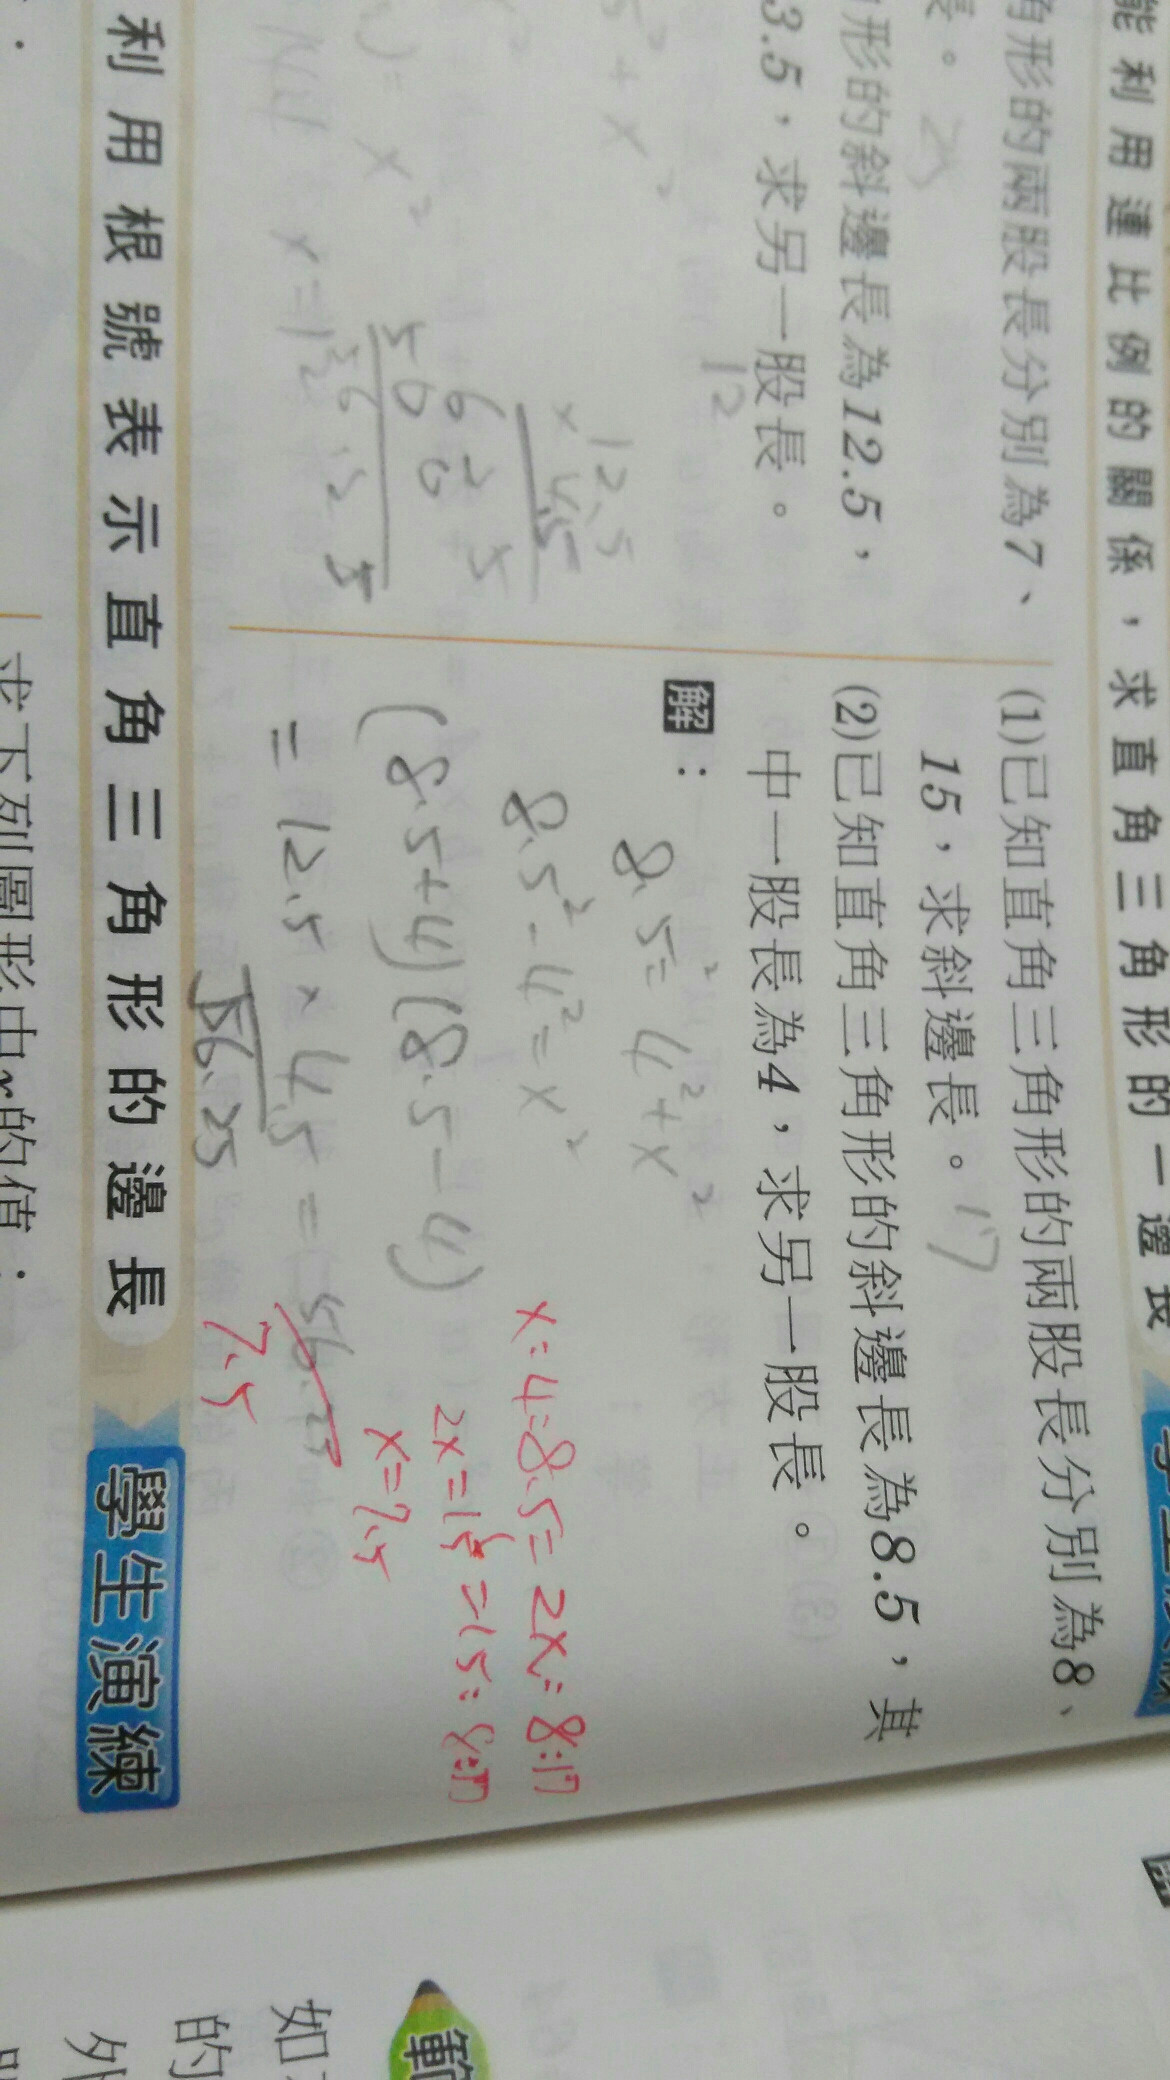 能利用連比例的關係，求直角三角形的一邊長
角形的兩股長分別為7、
長。25
形的斜邊長為12.5，
3.5，求另一股長。
12
5² + x²
12.5
× 4.5
625
500
56.25
) = x²
x = 12
(1)已知直角三角形的兩股長分別為8、
15，求斜邊長。17
(2)已知直角三角形的斜邊長為8.5，其
中一股長為4，求另一股長。
解：
8.5² = 4² + x²
8.5² - 4² = x²
(8.5+4)(8.5-4)
= 12.5 × 4.5 = 56.25
√56.25
7.5
x:4:8.5 = 2x:8:17
2x = 15 = 15:8:17
x = 7.5
利用根號表示直角三角形的邊長
學生演練
求下列圖形中x的值：
範
如
的
外